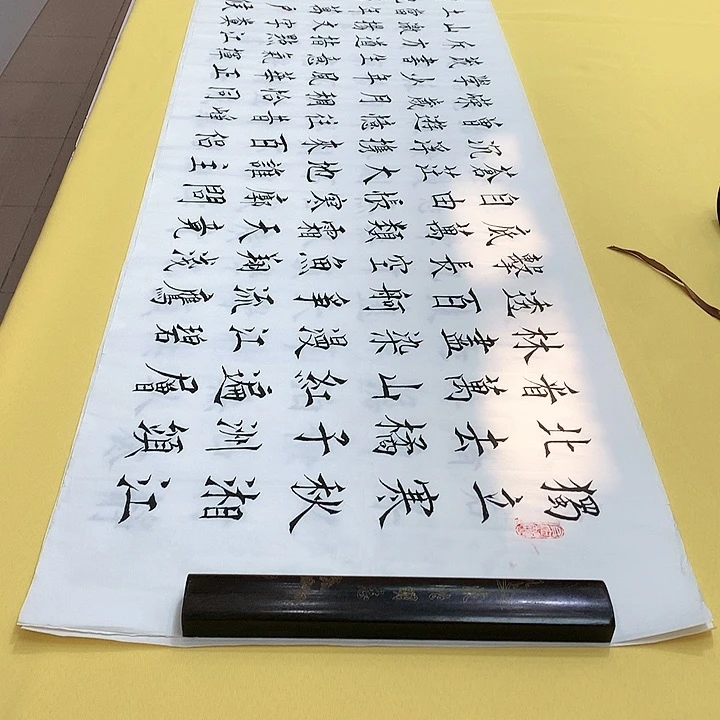 獨立寒秋湘江
北去橘子洲頭
看萬山紅遍層
林盡染漫江碧
透百舸爭流鷹
擊長空魚翔淺
底萬類霜天竟
自由悵寥廓問
蒼茫大地誰主
沉浮攜來百侶
曾遊憶往昔崢
嶸歲月稠恰同
學少年風華正
茂書生意氣揮
斥方遒指點江
山激揚文字糞
土